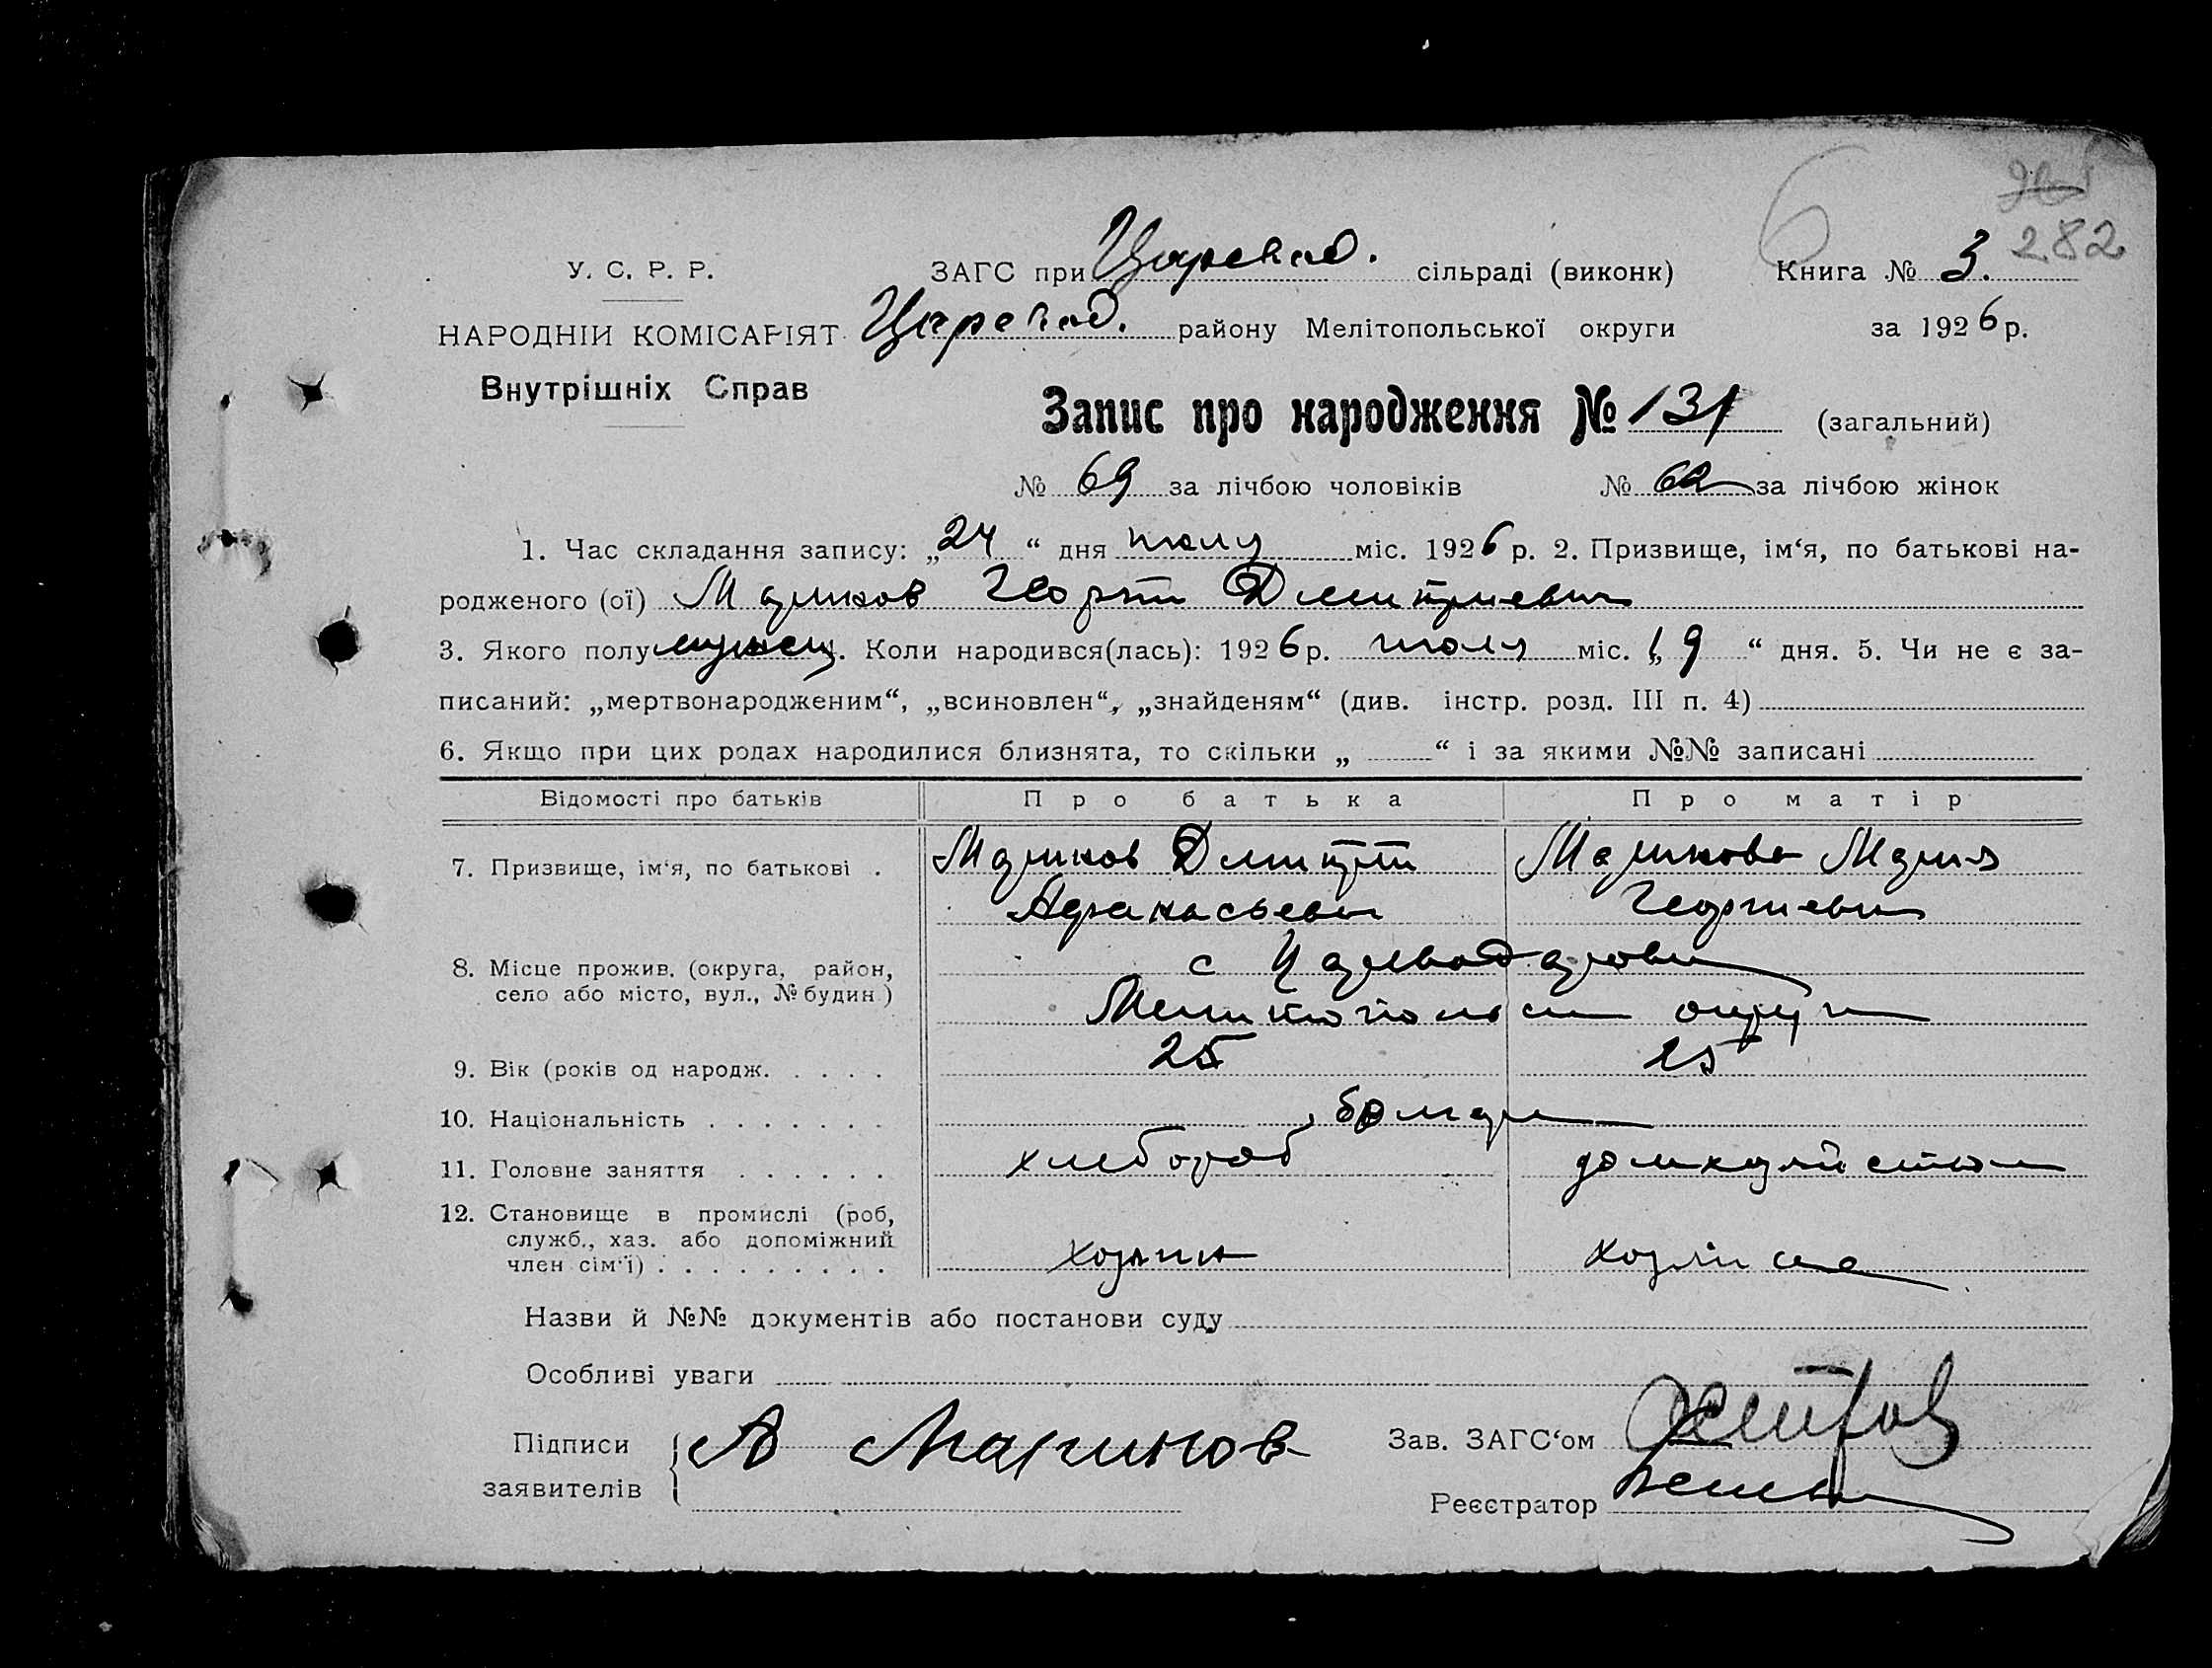 282
У. С. Р. Р. ЗАГС при Царевод. сільраді (виконк) Книга № 3.
НАРОДНІЙ КОМІСАРІЯТ Царевод. району Мелітопольської округи за 1926 р.
Внутрішніх Справ
Запис про народження № 131 (загальний)
№ 69 за лічбою чоловіків № 62 за лічбою жінок
1. Час складання запису: „24“ дня июля міс. 1926 р. 2. Призвище, ім‘я, по батькові на-
родженого (ої) Маринов Георгий Дмитриевич
3. Якого полу мужск. Коли народився(лась): 1926 р. июля міс. „19“ дня. 5. Чи не є за-
писаний: „мертвонародженим“, „всиновлен“, „знайденям“ (див. інстр. розд. III п. 4)
6. Якщо при цих родах народилися близнята, то скільки „ “ і за якими №№ записані
Відомості про батьків Про батька Про матір
7. Призвище, ім‘я, по батькові . Маринов Дмитрий Маринова Мария
Афанасьевич Георгиевна
8. Місце прожив. (округа, район, с Цареводаровка
село або місто, вул., № будин.) Мелитопольск округи
9. Вік (років од народж. . . . . 25 25
10. Національність . . . . . . . болгары
11. Головне заняття . . . . . . хлебороб домхозяйством
12. Становище в промислі (роб,
служб., хаз. або допоміжний
член сім‘ї) . . . . . . . . . хозяин хозяйка
Назви й №№ документів або постанови суду
Особливі уваги
Підписи А Маринов Зав. ЗАГС‘ом
заявителів
Реєстратор